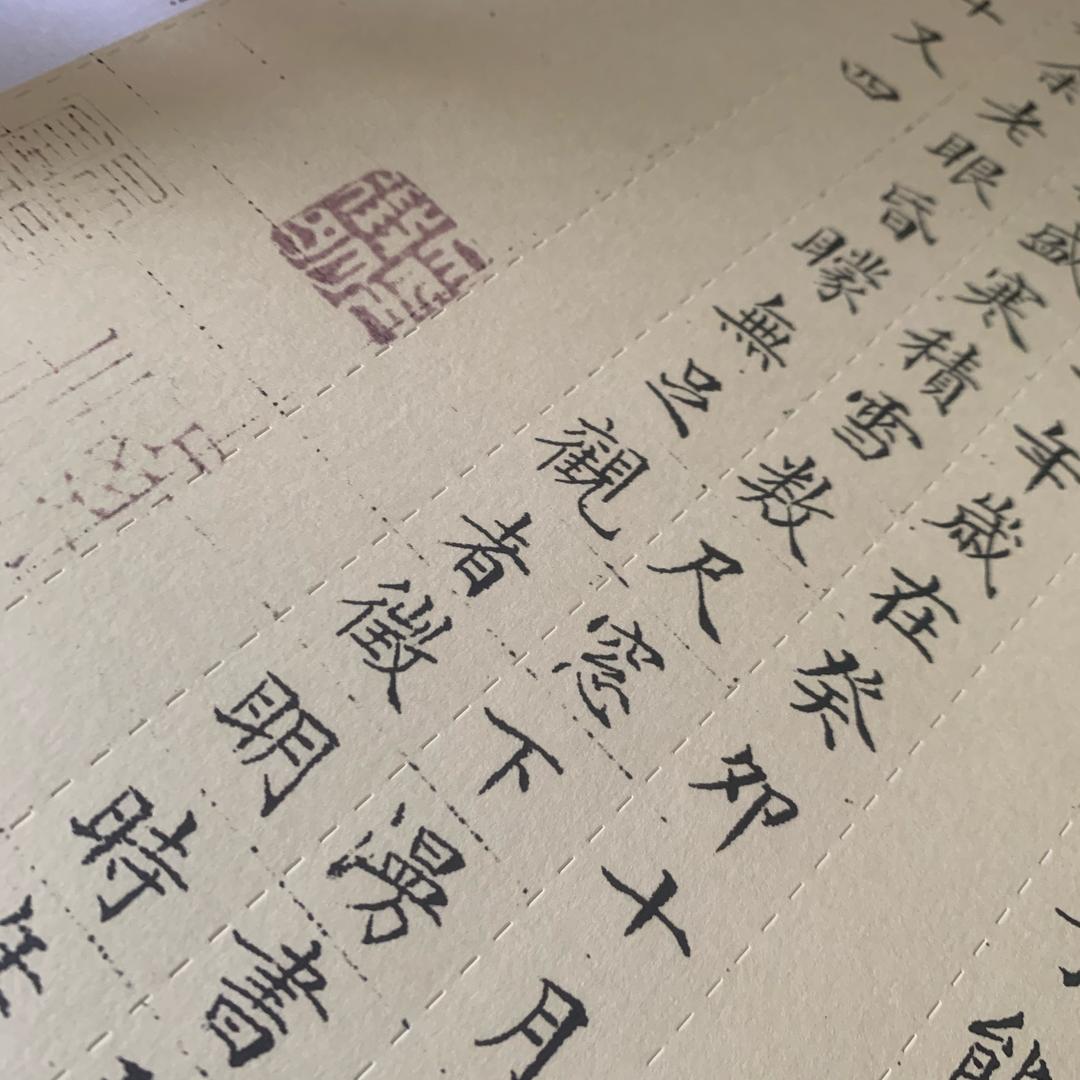 能
年歲在癸卯十月
盛寒積雪数尺窓下漫書
余老眼昏朦無足觀者徵明時年
十又四